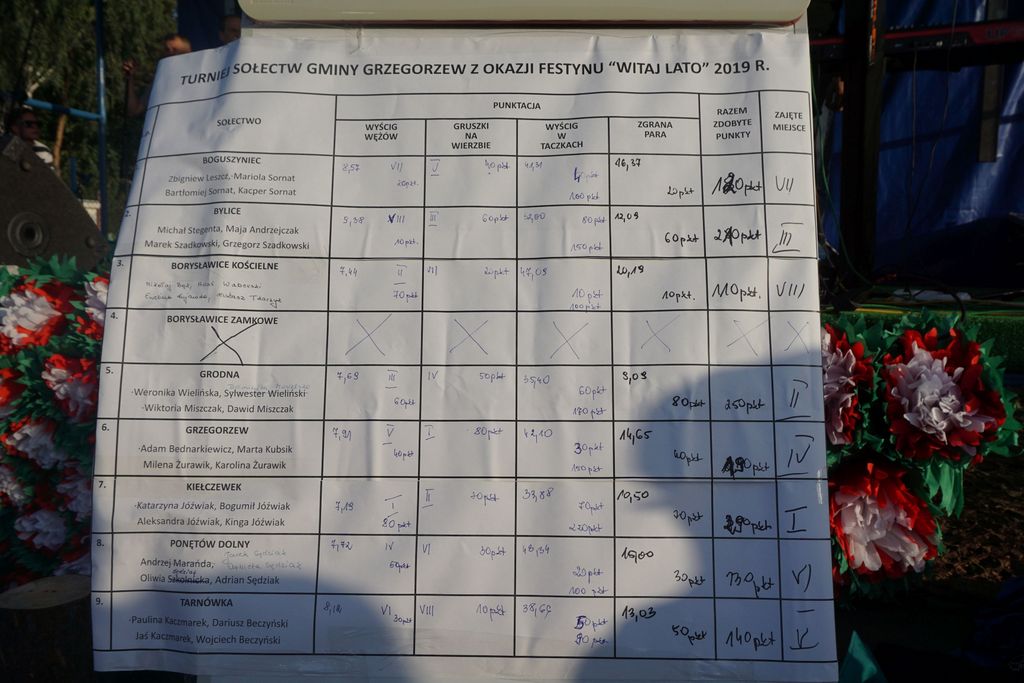 TURNIEJ SOŁECTW GMINY GRZEGORZEW Z OKAZJI FESTYNU "WITAJ LATO" 2019 R.
SOŁECTWO
PUNKTACJA
RAZEM ZDOBYTE PUNKTY
ZAJĘTE MIEJSCE
WYŚCIG WĘŻÓW
GRUSZKI NA WIERZBIE
WYŚCIG W TACZKACH
ZGRANA PARA
BOGUSZYNIEC
Zbigniew Leszcz, Mariola Sornat
Bartłomiej Sornat, Kacper Sornat
8,57 VII 20pkt. V 40pkt 41,31 100pkt 16,37 20pkt 120pkt VII
2. BYLICE
Michał Stegenta, Maja Andrzejczak
Marek Szadkowski, Grzegorz Szadkowski
9,38 VIII 10pkt. III 60pkt 80pkt 150pkt 12,09 60pkt 210pkt III
3. BORYSŁAWICE KOŚCIELNE
7,44 II 70pkt VII 20pkt 47,05 10pkt 100pkt 20,19 10pkt. 110pkt. VIII
4. BORYSŁAWICE ZAMKOWE
5. GRODNA
·Weronika Wielińska, Sylwester Wieliński
·Wiktoria Miszczak, Dawid Miszczak
7,69 III 60pkt IV 50pkt 35,40 60pkt 170pkt 9,09 80pkt 250pkt II
6. GRZEGORZEW
·Adam Bednarkiewicz, Marta Kubsik
Milena Żurawik, Karolina Żurawik
7,91 V 40pkt I 80pkt 42,10 30pkt 150pkt 14,65 40pkt 190pkt IV
7. KIEŁCZEWEK
·Katarzyna Jóźwiak, Bogumił Jóźwiak
Aleksandra Jóźwiak, Kinga Jóźwiak
7,19 I 80pkt II 70pkt 33,88 70pkt 220pkt 10,50 70pkt 290pkt I
8. PONĘTÓW DOLNY
Andrzej Marańda, Jacek Sędziak
Oliwia Szkolnicka, Adrian Sędziak
7,72 IV 50pkt VI 30pkt 20pkt 100pkt 15,00 30pkt 130pkt VI
9. TARNÓWKA
·Paulina Kaczmarek, Dariusz Beczyński
Jaś Kaczmarek, Wojciech Beczyński
8,12 VI 30pkt VIII 10pkt 50pkt 90pkt 13,03 50pkt 140pkt V